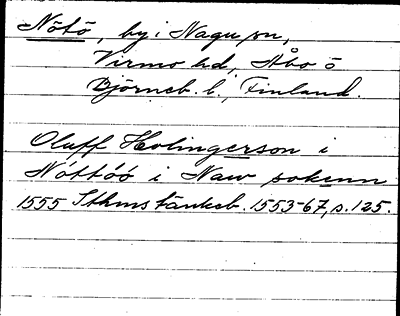 Nötö, by i Nagu sn,
Virmo hd, Åbo o
Björneb. l., Finland.
Oluff Holingerson i
Nöttöö i Naw sokenn
1555 Sthms tänkeb. 1553-67, s. 125.